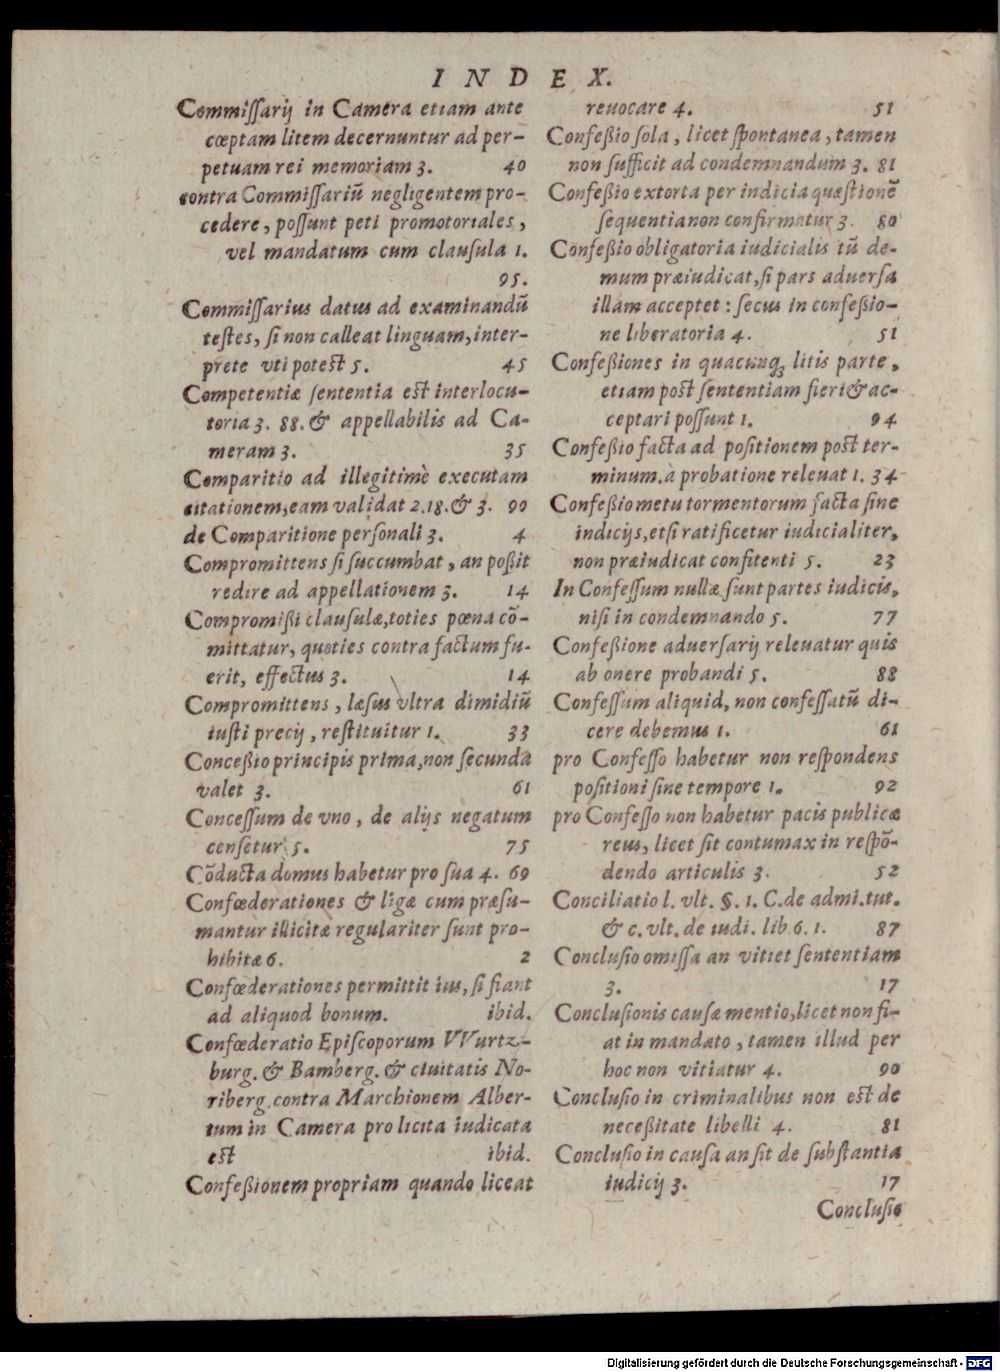 INDEX.
Commiſſarij in Camera etiam ante
cœptam litem decernuntur ad per-
petuam rei memoriam 3. 40
contra Commiſſariũ negligentem pro-
cedere, poſſunt peti promotoriales,
vel mandatum cum clauſula 1.
95.
Commiſſarius datus ad examinandũ
teſtes, ſi non calleat linguam, inter-
prete vti poteſt 5. 45
Competentiæ ſententia eſt interlocu-
toria 3. 88. & appellabilis ad Ca-
meram 3. 35
Comparitio ad illegitimè executam
citationem, eam validat 2. 18. & 3. 90
de Comparitione perſonali 3. 4
Compromittens ſi ſuccumbat, an poßit
redire ad appellationem 3. 14
Compromißi clauſulæ, toties pœna cõ-
mittatur, quoties contra factum fu-
erit, effectus 3. 14
Compromittens, læſus vltra dimidiũ
iuſti precij, reſtituitur 1. 33
Conceßio principis prima, non ſecunda
valet 3. 61
Conceſſum de vno, de alijs negatum
cenſetur 5. 75
Cõducta domus habetur pro ſua 4. 69
Confœderationes & ligæ cum præſu-
mantur illicitæ regulariter ſunt pro-
hibitæ 6. 2
Confœderationes permittit ius, ſi fiant
ad aliquod bonum. ibid.
Confœderatio Epiſcoporum VVurtz-
burg. & Bamberg. & ciuitatis No-
riberg. contra Marchionem Alber-
tum in Camera pro licita iudicata
eſt ibid.
Confeßionem propriam quando liceat
reuocare 4. 51
Confeßio ſola, licet ſpontanea, tamen
non ſufficit ad condemnandum 3. 81
Confeßio extorta per indicia quæſtionẽ
ſequentia non confirmatur 3. 80
Confeßio obligatoria iudicialis tũ de-
mum præiudicat, ſi pars aduerſa
illam acceptet: ſecus in confeßio-
ne liberatoria 4. 51
Confeßiones in quacunqꝫ litis parte,
etiam poſt ſententiam fieri & ac-
ceptari poſſunt 1. 94
Confeßio facta ad poſitionem poſt ter-
minum, à probatione releuat 1. 34
Confeßio metu tormentorum facta ſine
indicijs, etſi ratificetur iudicialiter,
non præiudicat confitenti 5. 23
In Confeſſum nullæ ſunt partes iudicis,
niſi in condemnando 5. 77
Confeßione aduerſarij releuatur quis
ab onere probandi 5. 88
Confeſſum aliquid, non confeſſatũ di-
cere debemus 1. 61
pro Confeſſo habetur non reſpondens
poſitioni ſine tempore 1. 92
pro Confeſſo non habetur pacis publicæ
reus, licet ſit contumax in reſpõ-
dendo articulis 3. 52
Conciliatio l. vlt. §. 1. C. de admi. tut.
& c. vlt. de iudi. lib. 6. 1. 87
Concluſio omiſſa an vitiet ſententiam
3. 17
Concluſionis cauſæ mentio, licet non fi-
at in mandato, tamen illud per
hoc non vitiatur 4. 90
Concluſio in criminalibus non eſt de
neceßitate libelli 4. 81
Concluſio in cauſa an ſit de ſubſtantia
iudicij 3. 17
Concluſio
Digitalisierung gefördert durch die Deutsche Forschungsgemeinschaft - DFG